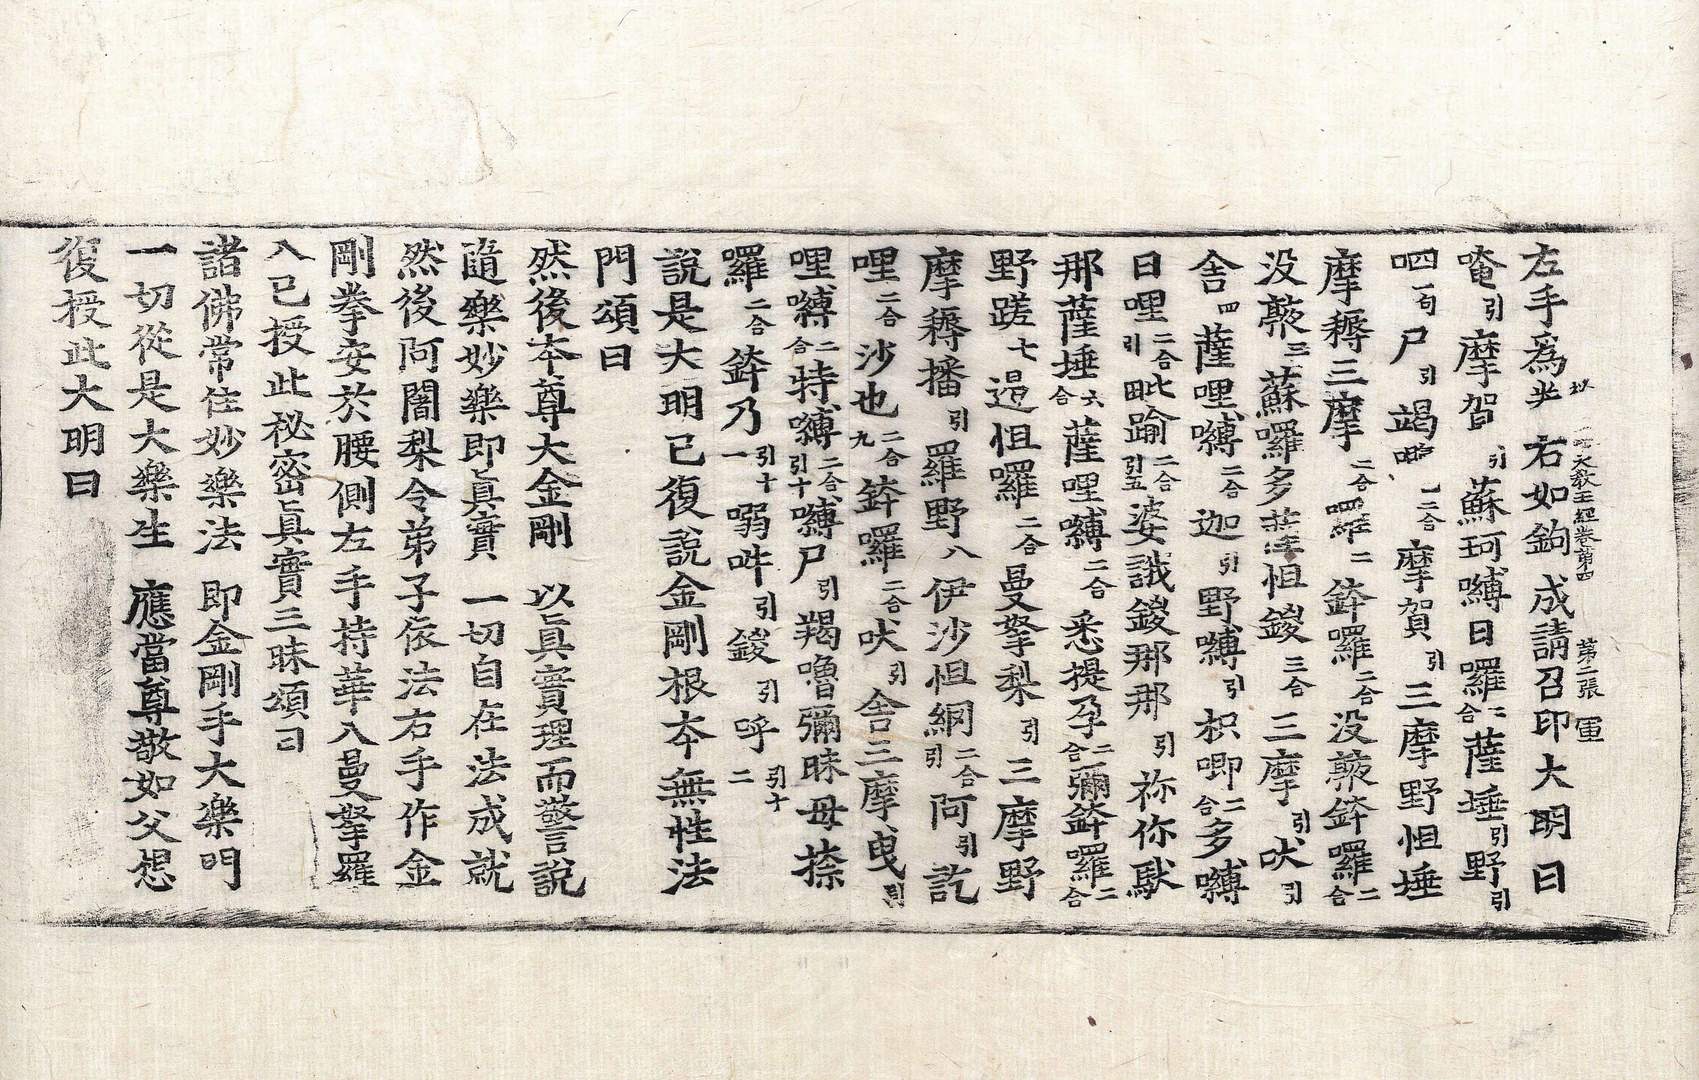 左手爲拳右如鉤 成請召印大明曰
大教王經卷第四 第二張 軍
唵引摩賀引蘇珂嚩日囉二合薩埵引野引
呬一句尸引竭囕二合摩賀引三摩野怛埵
摩耨三摩二合囉二鉢囉二合没䭾鉢囉二合
没䭾三蘇囉多薩怛鑁三合三摩引吠引
舍四薩哩嚩二合迦引野嚩引枳唧二合多嚩
日哩二合引毗踰二合引五婆誐鑁那那引祢你馱
那薩埵六合薩哩嚩二合悉提孕二合彌鉢囉二合
野蹉七遏怛囉二合曼拏梨引三摩野
摩耨播引羅野八伊沙怛網二合引阿引訖
哩二合沙也二合九鉢囉二合吠引舍三摩曳引
哩嚩二合特嚩二合引十嚩尸引羯嚕彌昧毋捺
囉二合鉢乃引十一弱吽引鑁引呼引十二
說是大明已復說金剛根本無性法
門頌曰
然後本尊大金剛 以眞實理而警説
隨樂妙樂即眞實 一切自在法成就
然後阿闍梨令弟子依法右手作金
剛拳安於腰側左手持華入曼拏羅
入已授此祕密眞實三昧頌曰
諸佛常住妙樂法 即金剛手大樂門
一切從是大樂生 應當尊敬如父想
復授此大明曰